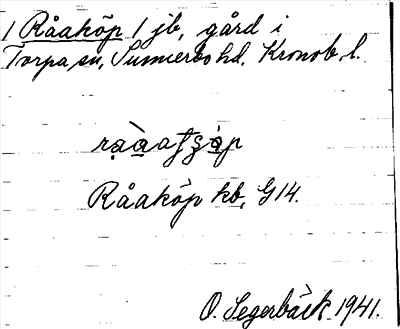 / Råaköp / jb, gård i
Torpa sn, Sunnerbo hd. Kronob. l.
Råaköp kb, G14.
O. Segerbäck 1941.